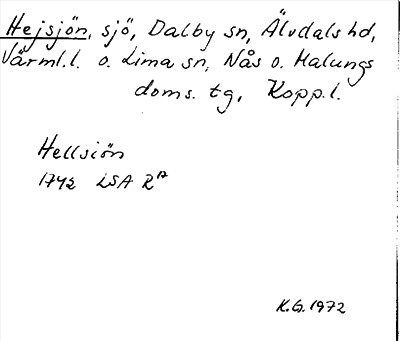 Hejsjön, sjö, Dalby sn, Älvdals hd,
Värml.l. o. Lima sn, Nås o. Malungs
doms. tg, Kopp.l.
Hellsiön
1742 LSA R 17
K.G. 1972